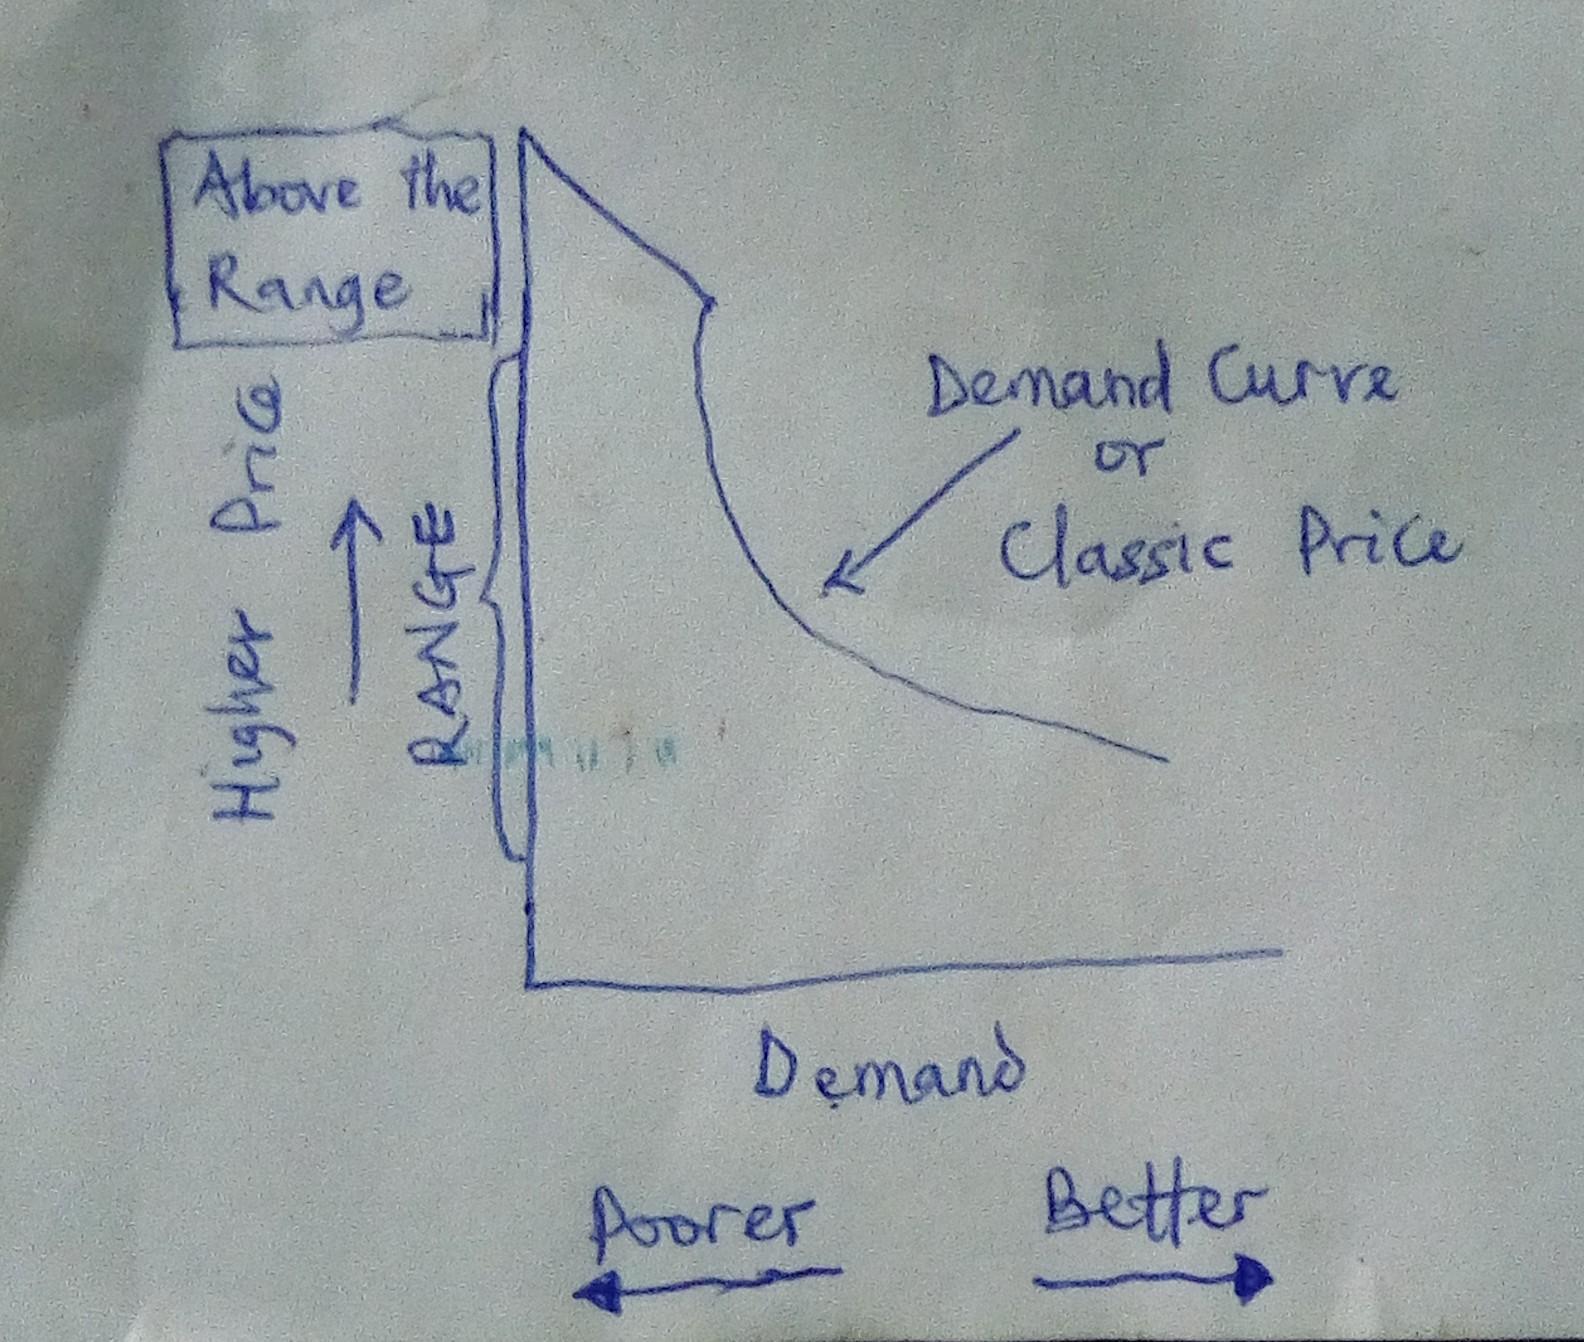 Above the
Range
Higher Price
RANGE
Demand Curve
or
Classic Price
Demand
Poorer
Better